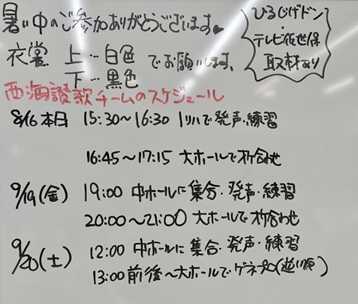 暑い中のご参加ありがとうございます♥
衣裳 上…白色
下…黒色 でお願いします。
ひるじげドン
テレビ佐世保
取材あり
西海讃歌チームのスケジュール
8/16 本日 15:30~16:30 リハで発声・練習
16:45~17:15 大ホールで打合わせ
9/19(金) 19:00 中ホールに集合・発声・練習
20:00~21:00 大ホールで打合わせ
9/20(土) 12:00 中ホールに集合・発声・練習
13:00前後~大ホールでゲネプロ(逆い順)